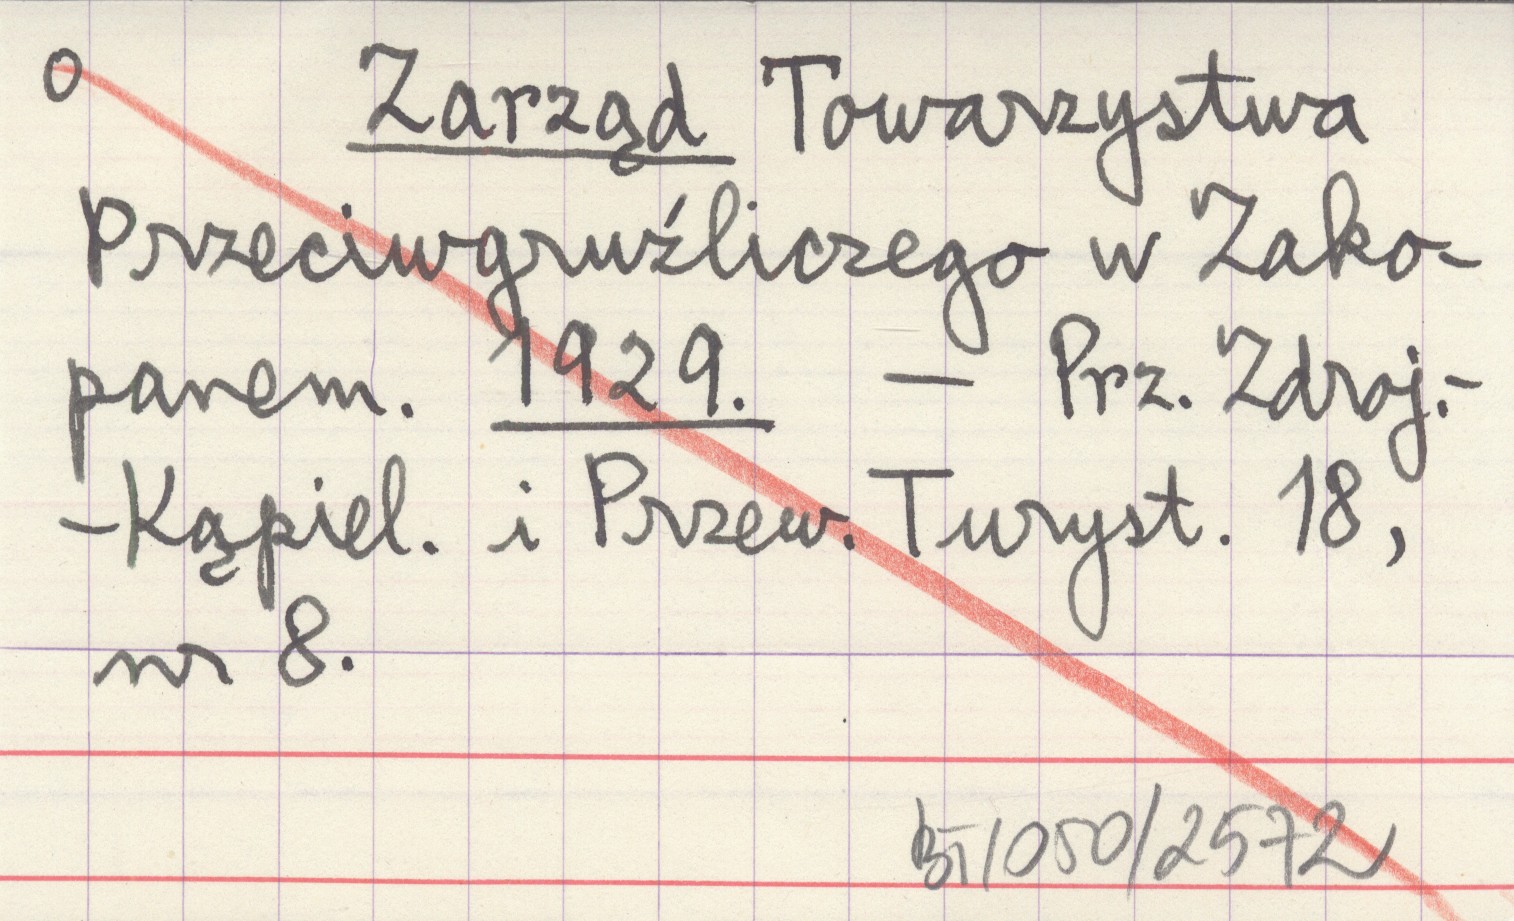 O Zarząd Towarzystwa
Przeciwgruźliczego w Zako-
panem. 1929. — Prz. Zdroj.-
-Kąpiel. i Przew. Turyst. 18,
nr 8.
BT/050/2572